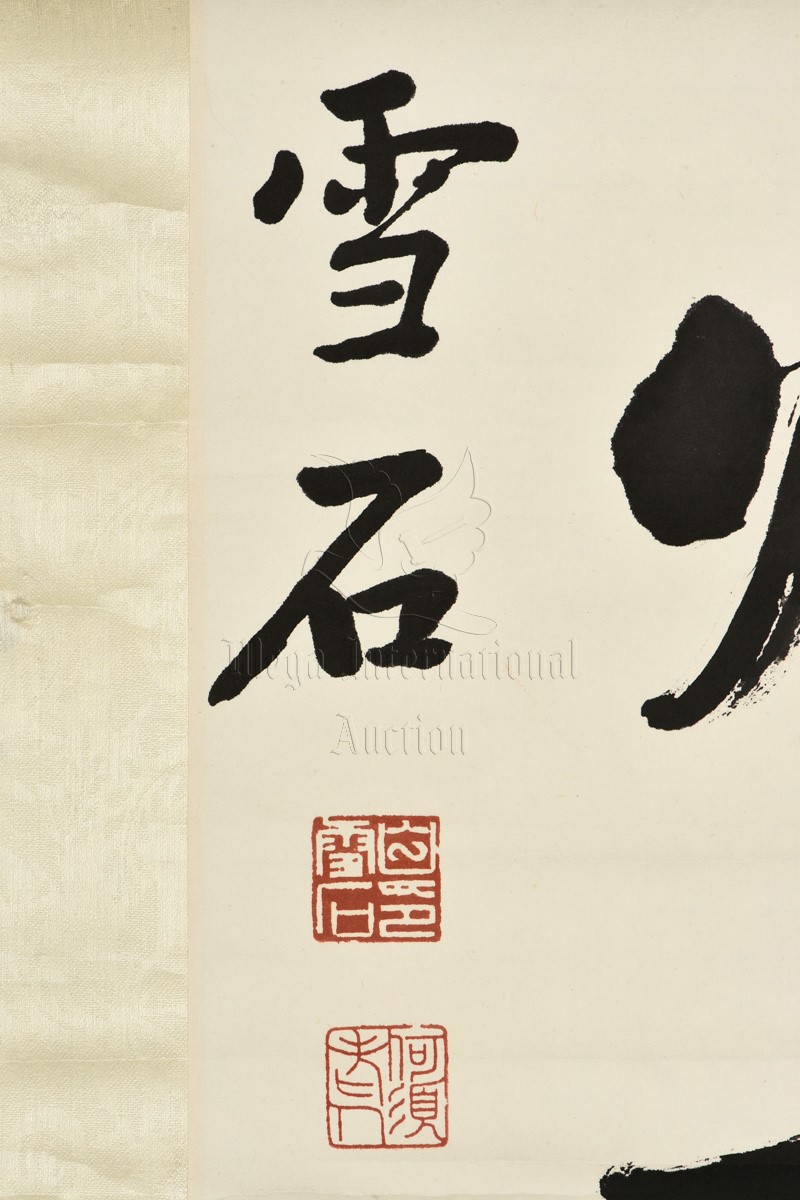 雪
石
Wega International
Auction
印
雪石
何須